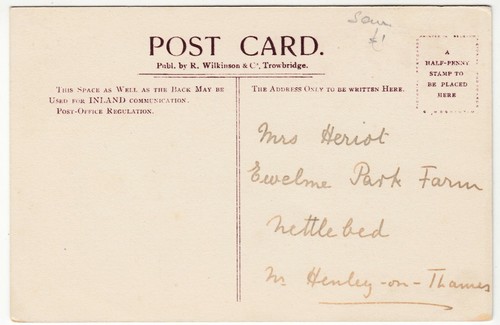 POST CARD.
Publ. by R. Wilkinson & Co, Trowbridge.
This Space as Well as the Back May be
Used for INLAND communication.
Post-Office Regulation.
The Address Only to be written Here.
A
HALF-PENNY
STAMP TO
BE PLACED
HERE
Mrs Heriot
Ewelme Park Farm
Nettlebed
Nr Henley-on-Thames